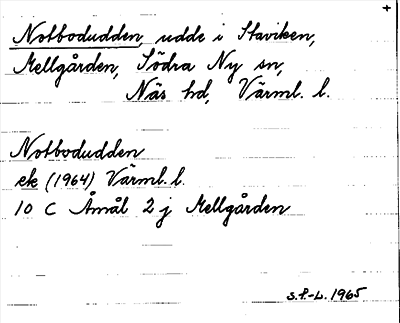 +
Notbodudden, udde i Staviken,
Mellgården, Södra Ny sn,
Näs hd, Värml. l.
Notbodudden
ek (1964) Värml. l.
10 C Åmål 2 j Mellgården
S.F.-L. 1965